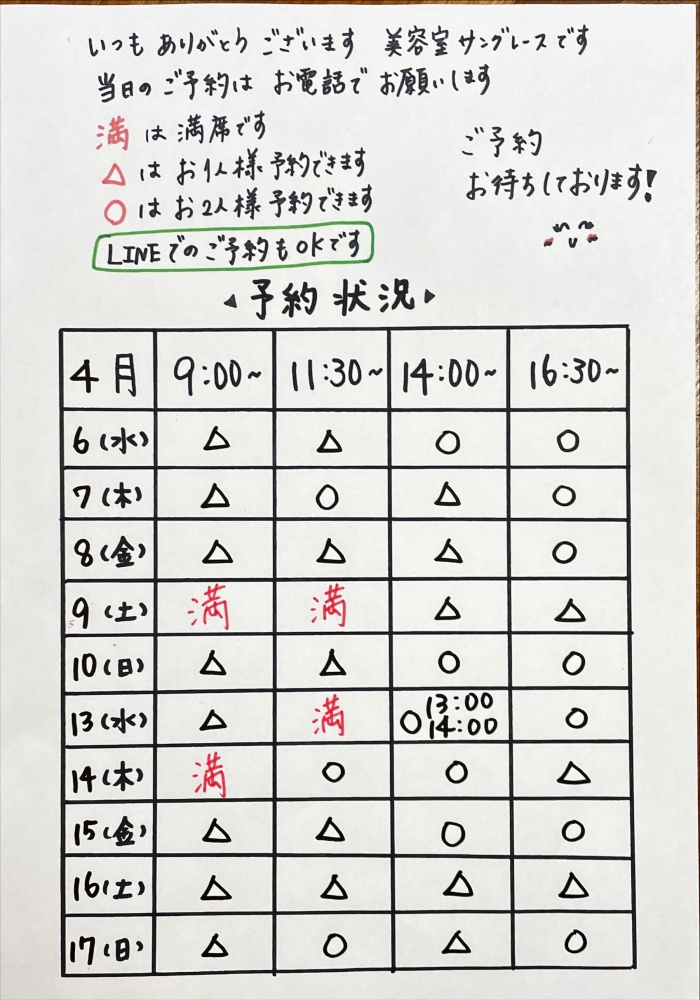 いつも ありがとう ございます 美容室 サングレースです
当日の ご予約は お電話で お願いします
満 は 満席です
△ は お1人様 予約できます
○ は お2人様 予約できます
LINEでのご予約も OKです
ご予約
お待ちしております!
予約 状況
4月 9:00~ 11:30~ 14:00~ 16:30~
6(水) △ △ ○ ○
7(木) △ ○ △ ○
8(金) △ △ △ ○
9(土) 満 満 △ △
10(日) △ △ ○ ○
13(水) △ 満 ○ 13:00 14:00 ○
14(木) 満 ○ ○ △
15(金) △ △ ○ ○
16(土) △ △ △ △
17(日) △ ○ △ ○